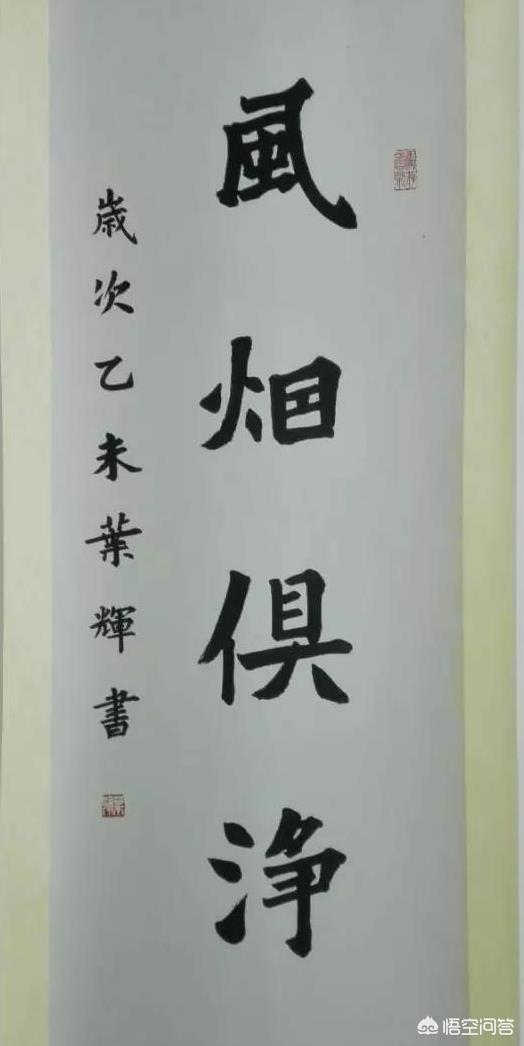 風烟俱淨
歲次乙未葉輝書
悟空问答